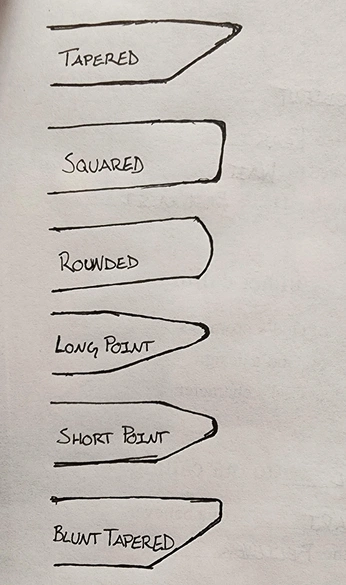 TAPERED
SQUARED
ROUNDED
LONG POINT
SHORT POINT
BLUNT TAPERED